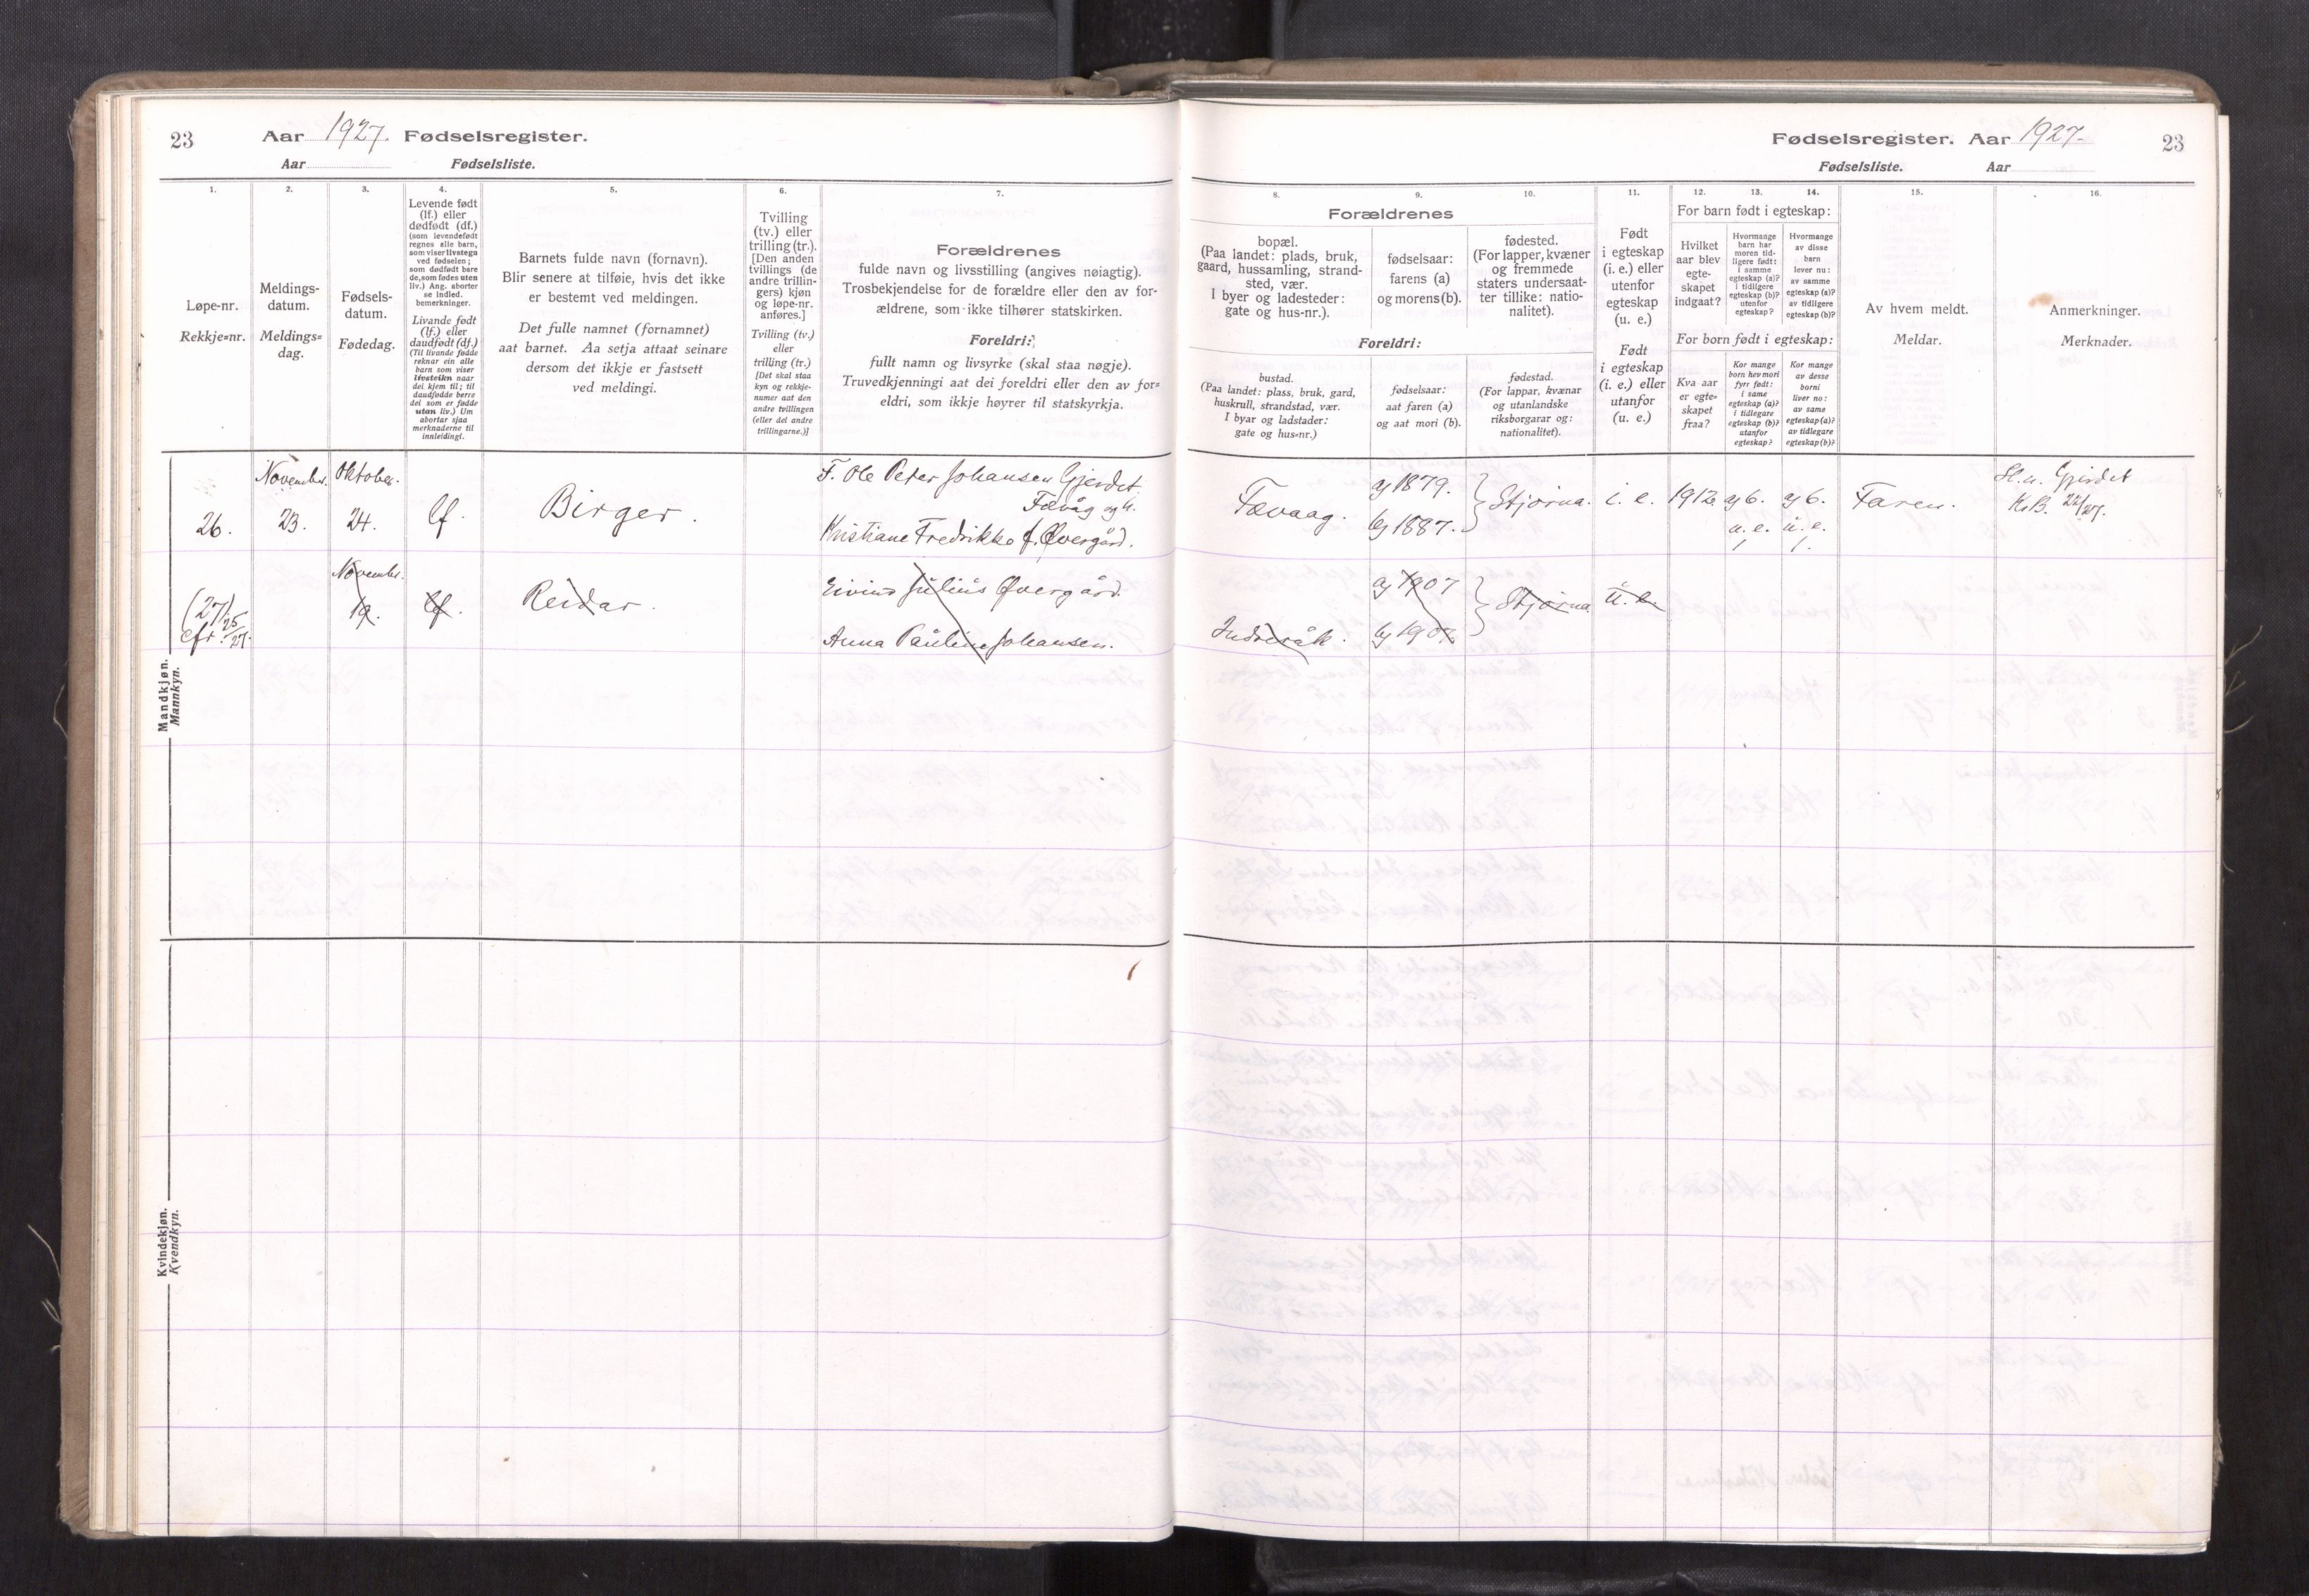 23
Aar 1927. Fødselsregister.
Aar Fødselsliste.
1.
2.
3.
4.
5.
6.
7.
Løpe-nr.
Rekkje-nr.
Meldings-
datum.
Meldings-
dag.
Fødsels-
datum.
Fødedag.
Levende født
(lf.) eller
dødfødt (df.)
(som levendefødt
regnes alle barn,
som viser livstegn
ved fødselen;
som dødfødt bare
de, som fødes uten
liv.) Ang. aborter
se indled.
bemerkninger.
Livande født
(lf.) eller
daudfødt (df.)
(Til livande fødde
reknar ein alle
barn som viser
livsteikn naar
dei kjem til; til
daudfødde berre
dei som er fødde
utan liv.) Um
abortar sjaa
merknaderne til
innleidingi.
Barnets fulde navn (fornavn).
Blir senere at tilføie, hvis det ikke
er bestemt ved meldingen.
Det fulle namnet (fornamnet)
aat barnet. Aa setja attaat seinare
dersom det ikkje er fastsett
ved meldingi.
Tvilling
(tv.) eller
trilling (tr.).
[Den anden
tvillings (de
andre trillin-
gers) kjøn
og løpe-nr.
anføres.]
Tvilling (tv.)
eller
trilling (tr.)
[Det skal staa
kyn og rekkje-
numer aat den
andre tvillingen
(eller dei andre
trillingarne.)]
Forældrenes
fulde navn og livsstilling (angives nøiagtig).
Trosbekjendelse for de forældre eller den av for-
ældrene, som ikke tilhører statskirken.
Foreldri:
fullt namn og livsyrke (skal staa nøgje).
Truvedkjenningi aat dei foreldri eller den av for-
eldri, som ikkje høyrer til statskyrkja.
26.
November.
23.
Oktober.
24.
lf.
Birger.
F. Ole Peter Johansen Gjerdet
Fævåg og h.
Kristiane Fredrikke f. Øvergård.
(27)
cfr. 25/27.
November.
19.
lf.
Reidar.
Eivind Julius Øvergård.
Anna Pauline Johansen.
Mandkjøn.
Mannkyn.
Kvindekjøn.
Kvendkyn.
Fødselsregister. Aar 1927.
23
Fødselsliste. Aar
8.
9.
10.
11.
12.
13.
14.
15.
16.
Forældrenes
bopæl.
(Paa landet: plads, bruk,
gaard, hussamling, strand-
sted, vær.
I byer og ladesteder:
gate og hus-nr.).
fødselsaar:
farens (a)
og morens (b).
fødested.
(For lapper, kvæner
og fremmede
staters undersaat-
ter tillike: natio-
nalitet).
Foreldri:
bustad.
(Paa landet: plass, bruk, gard,
huskrull, strandstad, vær.
I byar og ladstader:
gate og hus-nr.)
fødselsaar:
aat faren (a)
og aat mori (b).
fødestad.
(For lappar, kvænar
og utanlandske
riksborgarar og:
nationalitet).
Født
i egteskap
(i. e.) eller
utenfor
egteskap
(u. e.)
Født
i egteskap
(i. e.) eller
utanfor
(u. e.)
For barn født i egteskap:
Hvilket
aar blev
egte-
skapet
indgaat?
Hvormange
barn har
moren tid-
ligere født:
i samme
egteskap (a)?
i tidligere
egteskap (b)?
utenfor
egteskap?
Hvormange
av disse
barn
lever nu:
av samme
egteskap (a)?
av tidligere
egteskap (b)?
For born født i egteskap:
Kva aar
er egte-
skapet
fraa?
Kor mange
born hev mori
fyrr født:
i same
egteskap (a)?
i tidlegare
egteskap (b)?
utanfor
egteskap?
Kor mange
av desse
borni
liver no:
av same
egteskap (a)?
av tidlegare
egteskap (b)?
Av hvem meldt.
Meldar.
Anmerkninger.
Merknader.
Fævaag.
a) 1879.
b) 1887.
Stjørna.
i. e.
1912
a) 6.
u. e.
1
a) 6.
u. e.
1.
Faren.
Sl.n. Gjerdet
K.B.
a) 1907
b) 1907.
Stjørna.
u. e.